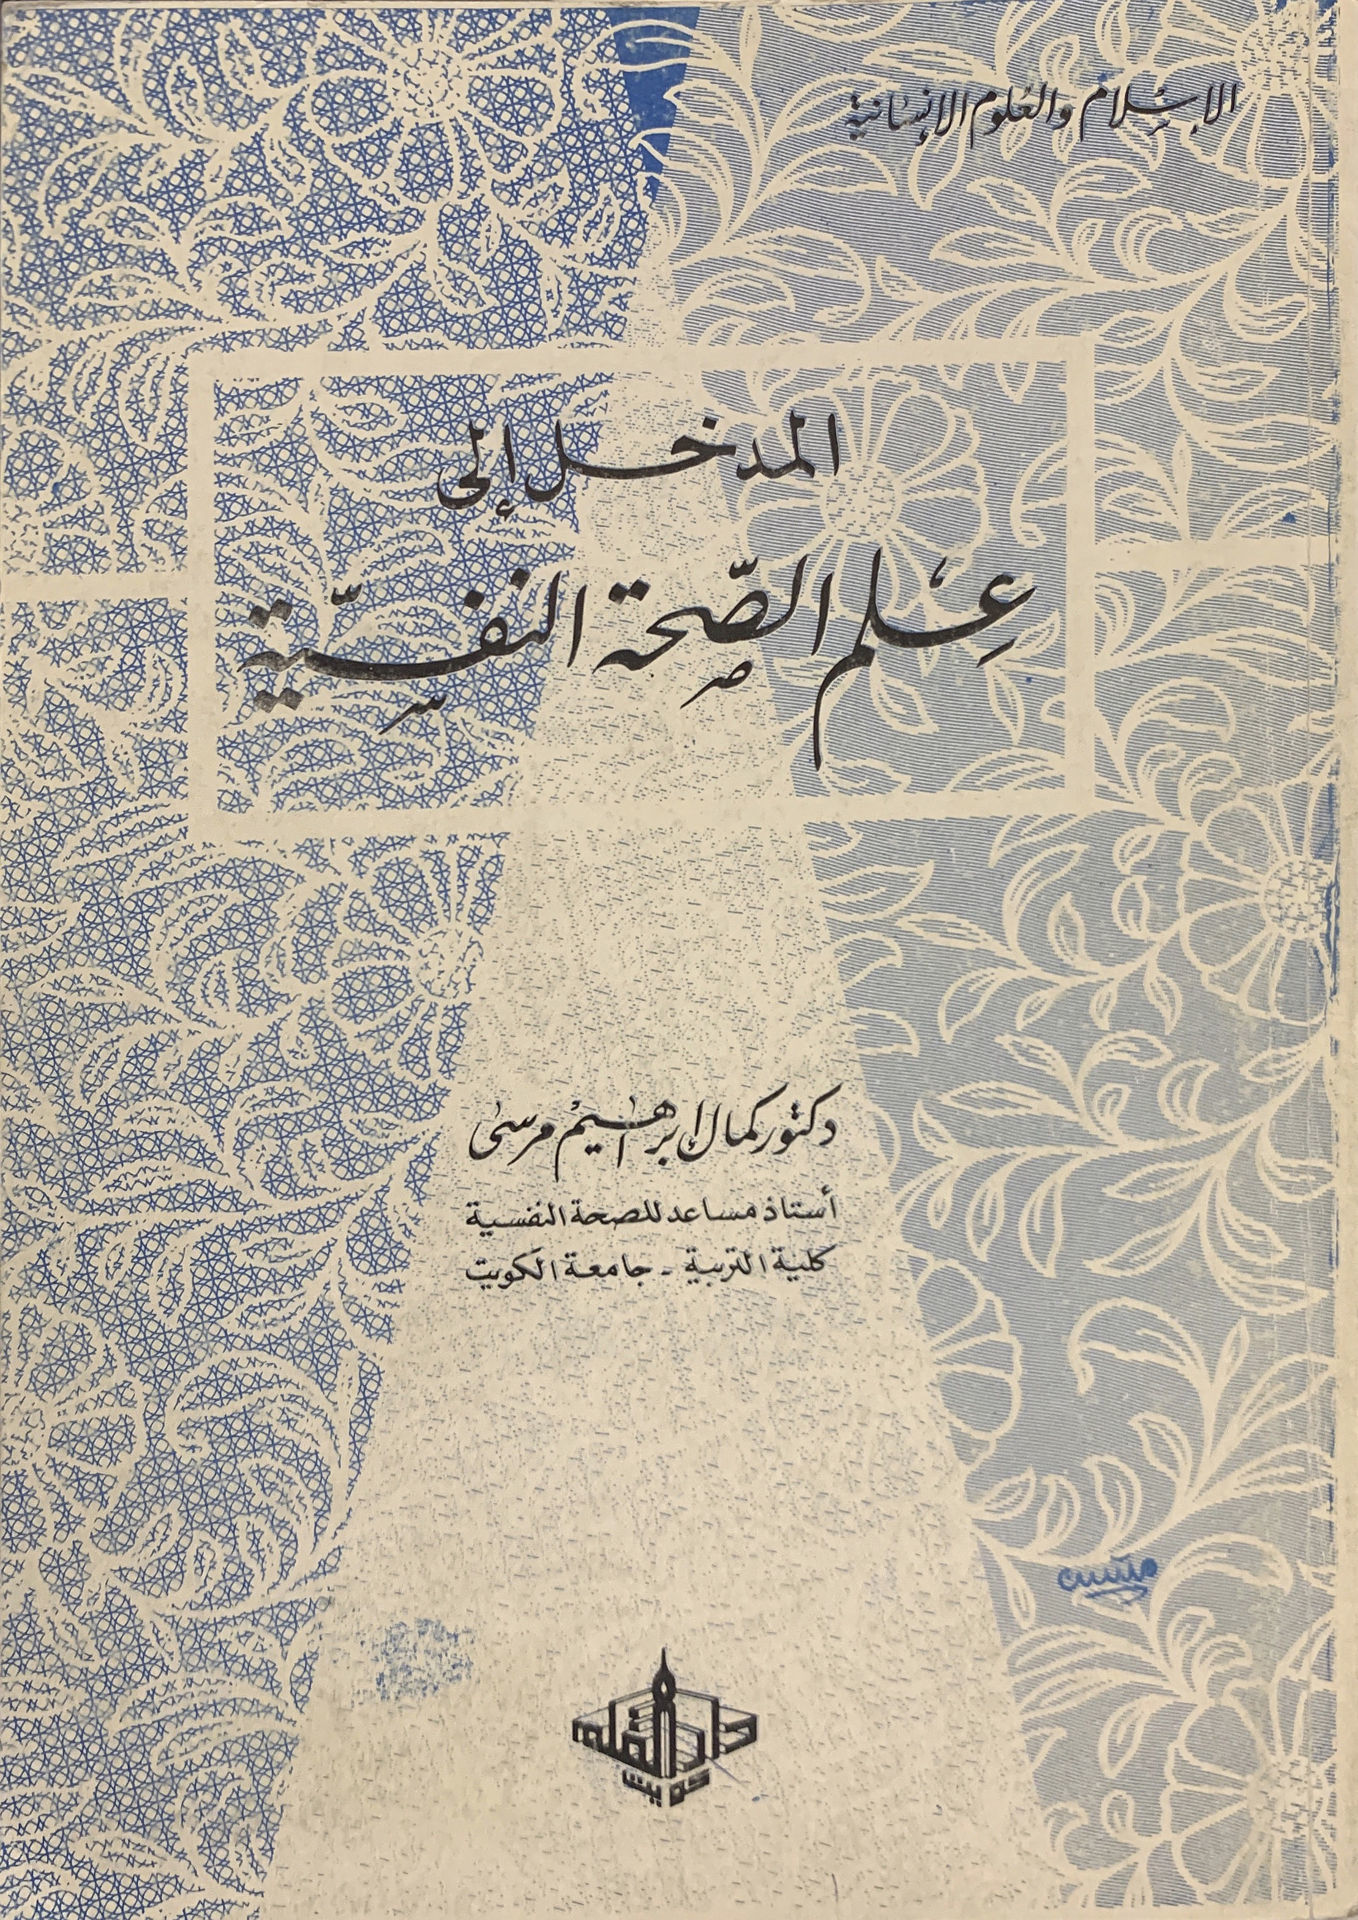 الإسلام والعلوم الإنسانية
المدخل إلى
علم الصّحة النفسيّة
دكتور كمال إبراهيم مرسى
أستاذ مساعد للصحة النفسية
كلية التربية - جامعة الكويت
دار القلم
كويت